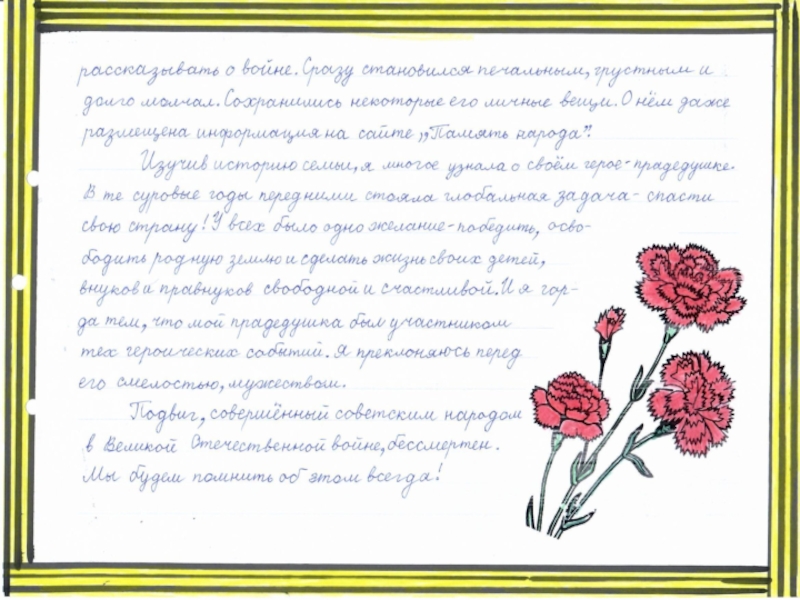 рассказывать о войне. Сразу становился печальным, грустным и
долго молчал. Сохранились некоторые его личные вещи. О нём даже
размещена информация на сайте „Память народа".
Изучив историю семьи, я многое узнала о своём герое-прадедушке.
В те суровые годы перед ними стояла глобальная задача - спасти
свою страну! У всех было одно желание - победить, осво-
бодить родную землю и сделать жизнь своих детей,
внуков и правнуков свободной и счастливой. И я гор-
да тем, что мой прадедушка был участником
тех героических событий. Я преклоняюсь перед
его смелостью, мужеством.
Подвиг, совершённый советским народом
в Великой Отечественной войне, бессмертен.
Мы будем помнить об этом всегда!